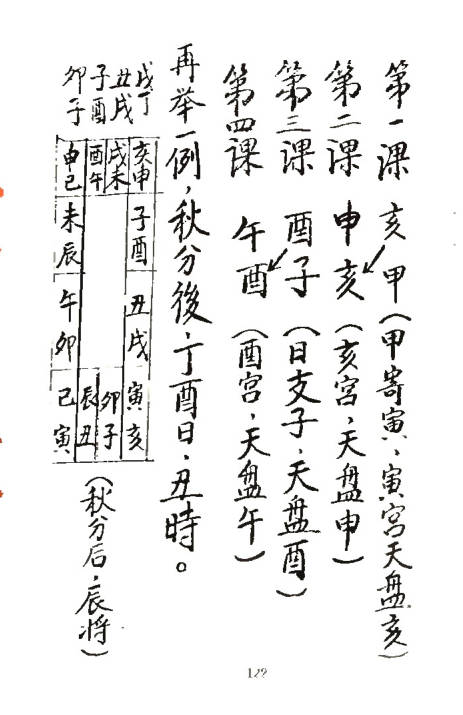 第一课 亥甲(甲寄寅、寅宫天盘亥)
第二课 申亥(亥宫、天盘申)
第三课 酉子(日支子、天盘酉)
第四课 午酉(酉宫、天盘午)
再举一例,秋分後,丁酉日,丑時。
戌丁
丑戌
子酉
卯子
亥申 子酉 丑戌 寅亥
戌未 卯子
酉午 辰丑
申巳 未辰 午卯 巳寅
(秋分后,辰将)
129